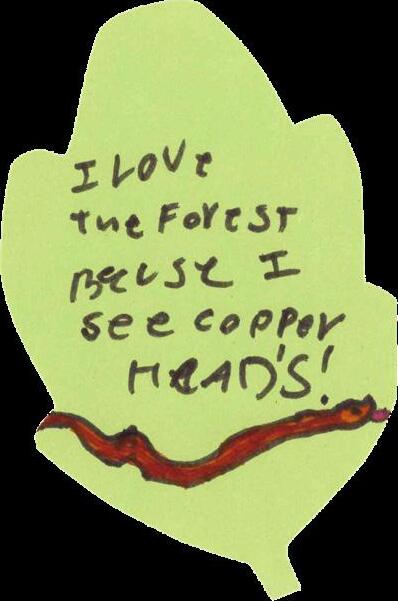 I LOVe
the ForesT
Becuse I
see copper
HeAD'S!